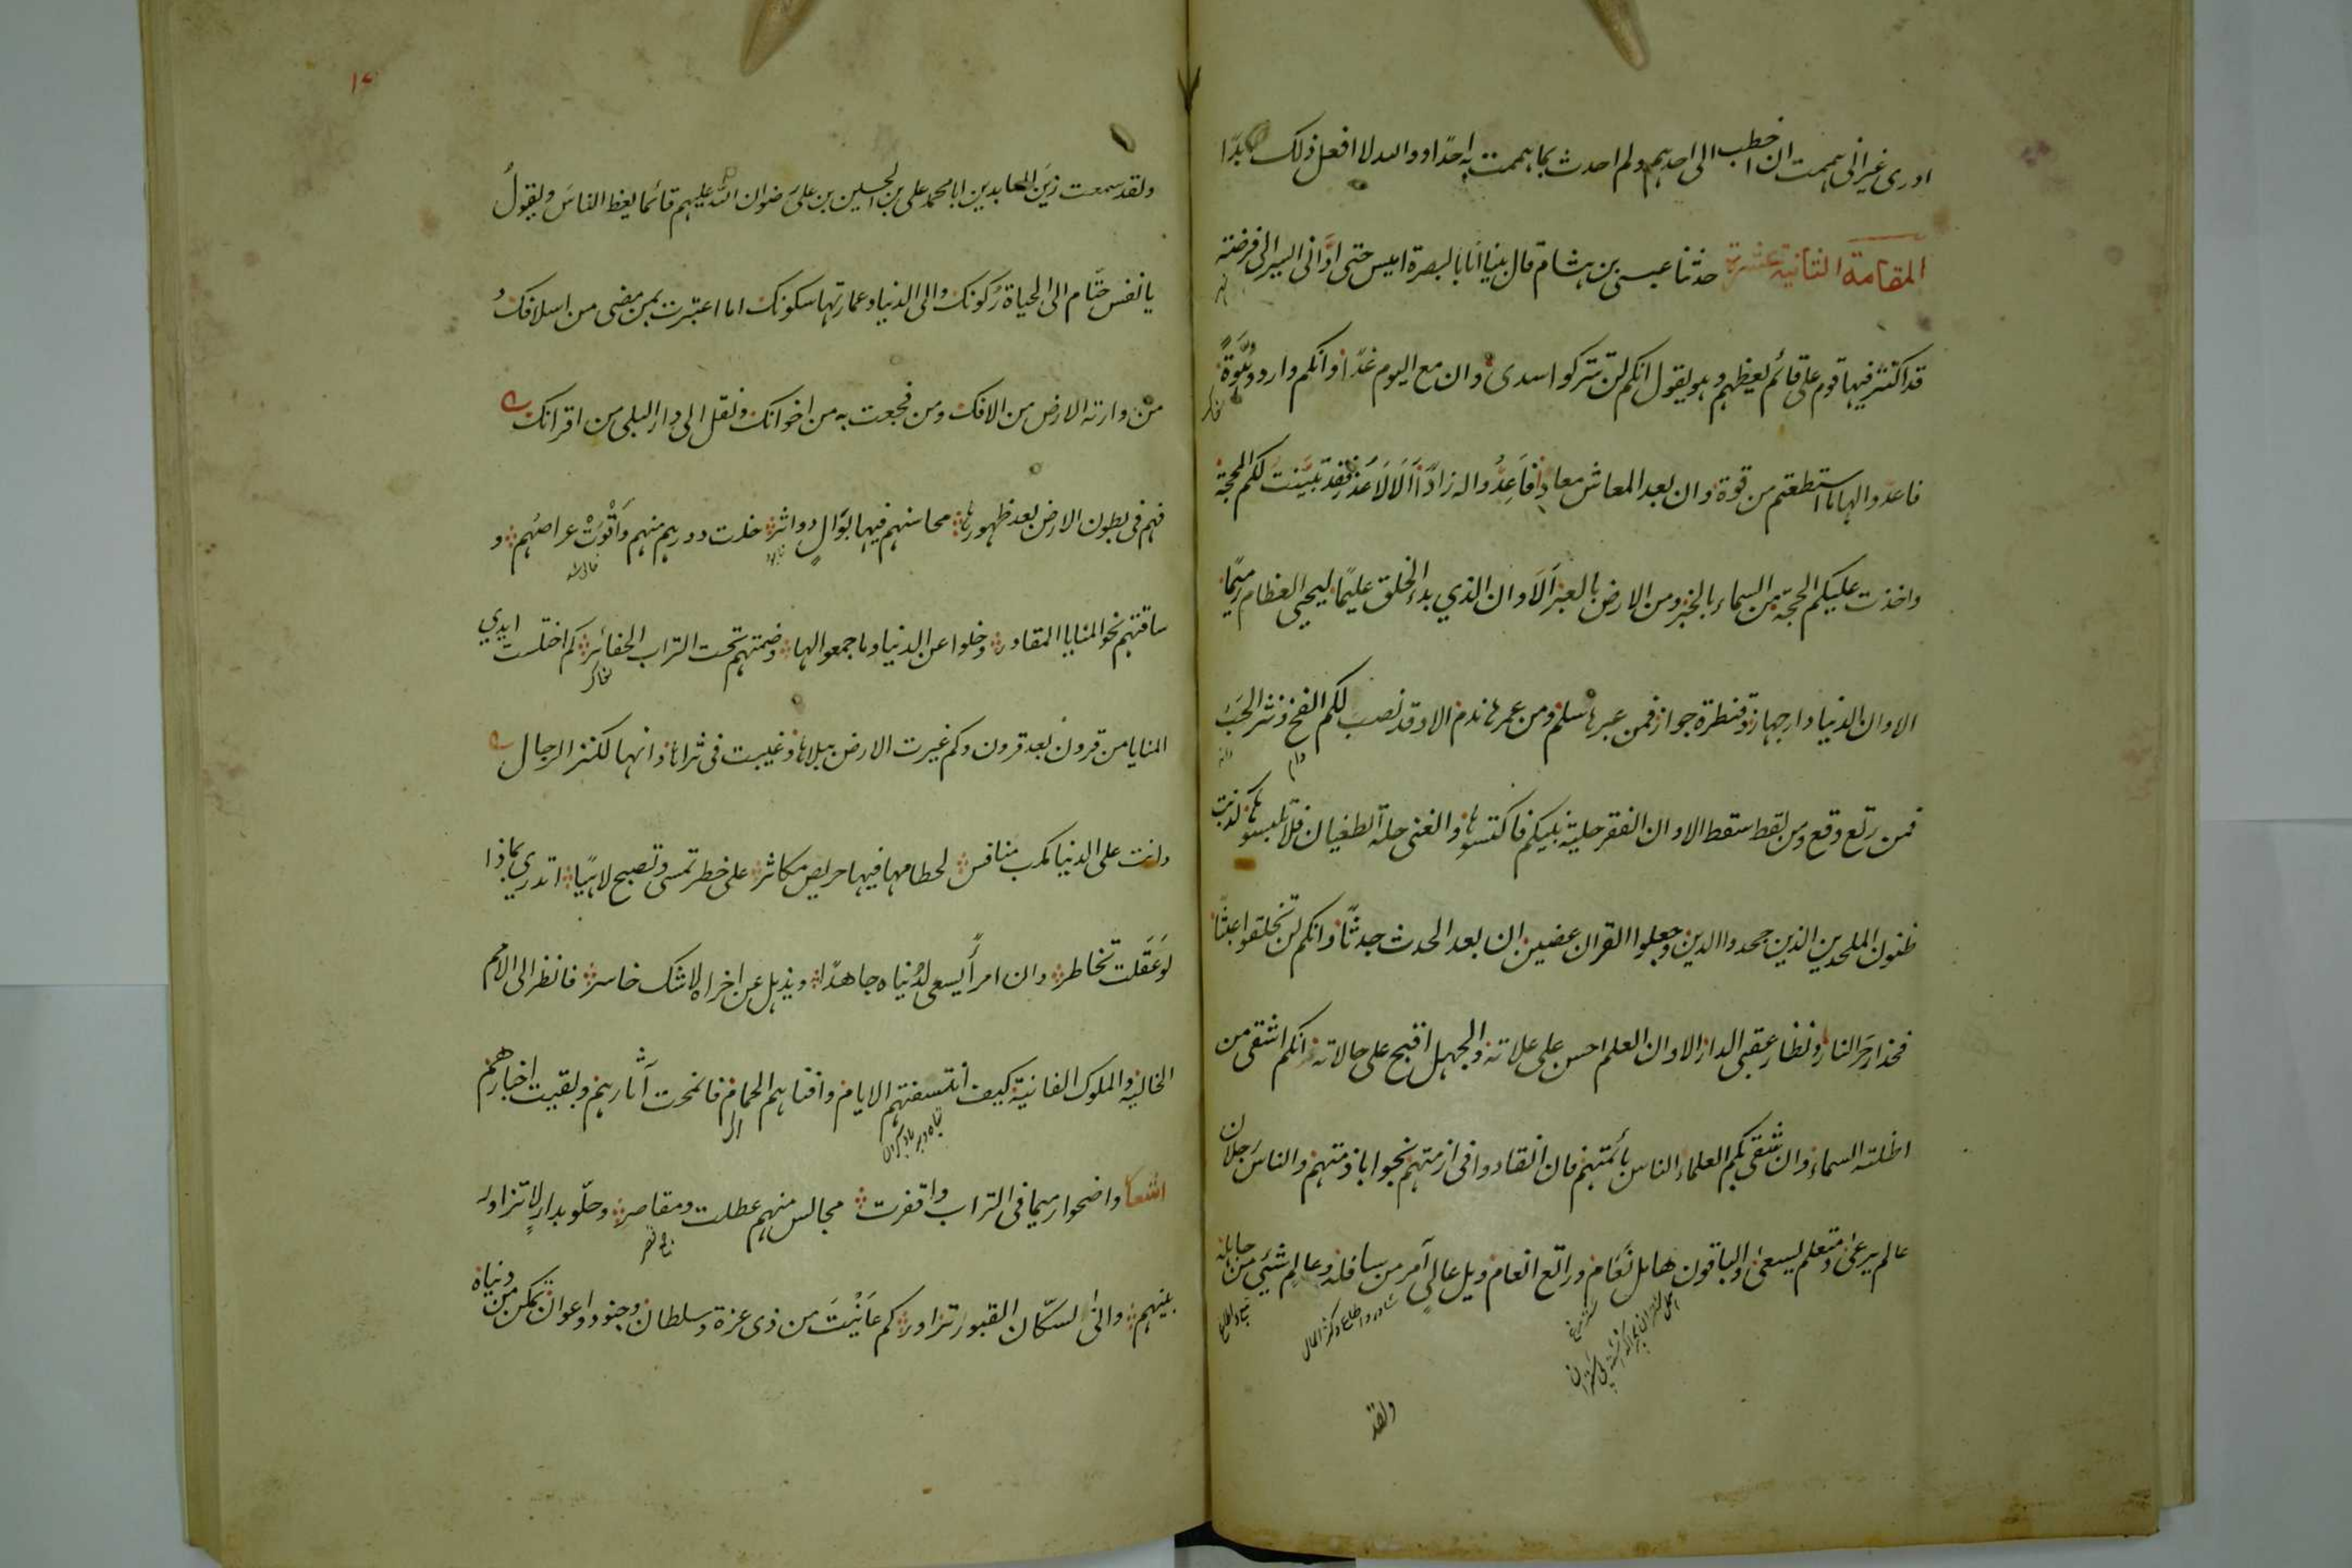 ادرى غير انى هممت ان اخطب الى احدهم ولم احدث بما هممت به احدًا ووالله لا افعل ذلك ابدًا
المقامة الثانية عشرة حدثنا عيسى بن هشام قال بينا انا بالبصرة اميس حتى ادّانى السير الى فرضته
قد اكثر فيها قوم على قائم يعظهم وهو يقول انكم لن تتركوا سدى وان مع اليوم غدًا وانكم واردو هُوّةً
فاعدّوا لها ما استطعتم من قوة وان بعد المعاش معادًا فَاَعِدُّوا له زادًا اَلَا لَا عُذر فقد بُيّنت لكم المحجة
واخذت عليكم الحجة من السماء بالخبر ومن الارض بالعبر اَلَا وان الذي بدء الخلق عليمًا ليحيى العظام رميمًا
الا وان الدنيا دار جهاز وقنطرة جواز فمن عبرها سلم ومن عمرها ندم الا وقد نصبَ لكم الفخ ونثر الحَبّ
دام
دانه
فمن رتع وقع ومن لقط سقط الا وان الفقر حلية نبيكم فاكتسوها والغنى حلة الطغيان فلا تلبسوها كذبت
ظنون الملحدين الذين جحدوا الدين وجعلوا القران عضين ان بعد الحدث جدثًا وانكم لن تخلقوا عبثًا
فحذار حَرّ النار ونظار عقبى الدار الا وان العلم احسن على علاته والجهل اقبح على حالاته انكم اشقى من
اظلته السماء وان شقى بكم العلماء الناس بأئمتهم فان انقادوا فى ازمتهم نجوا باذمتهم والناس رجلان
عالم يرعى ومتعلم يسعى والباقون هامل نَعَام وراتع انعام ويل عالٍ آمر من سافله وعالِم شئى من جاهله
ولقد
١٧
ولقد سمعت زين العابدين ابا محمد على بن الحسين بن على رضوان الله عليهم قائما يعظ الناسَ ويقولُ
يا نفس حتّام الى الحياة رُكونك والى الدنيا وعمارتها سكونك اما اعتبرت بمن مضى من اسلافك و
من وارته الارض من الافك ومن فجعت به من اخوانك ونقل الى دار البلى من اقرانك
فهم فى بطون الارض بعد ظهورها محاسنهم فيها بَوَالٍ دواثر خلت دورهم منهم وَاَقْوَتْ عراصُهم و
ساقتهم نحو المنايا المقادر وخلوا عن الدنيا وما جمعوا لها وضمتهم تحت التراب الحفائر كم اختلست ايدي
المنايا من قرون بعد قرون وكم غيرت الارض ببلاها وغيبت فى ثراها وانها لكنز الرجال
وانت على الدنيا مكب منافس لحطامها فيها حريص مكاثر على خطر تمسى وتصبح لاهيًا اتدرى بماذا
لوَ عَقَلت تخاطر وان امرأً يسعى لدُنياه جاهدًا ويذهل عن اخراه لاشك خاسر فانظر الى الامم
الخالية والملوك الفانية كيف انتسفتهم الايام وافناهم الحمام فانمحت آثارهم وبقيت اخبارهم
اشعار واضحوا رميما فى التراب واقفرت مجالس منهم عطلت ومقاصر وحلّوا بدارٍ لا تزاور
بينهم وانّى لسكّان القبور تزاور كم عَايَنْتَ من ذى عزة وسلطان وجنود واعوان تمكن من دنياه